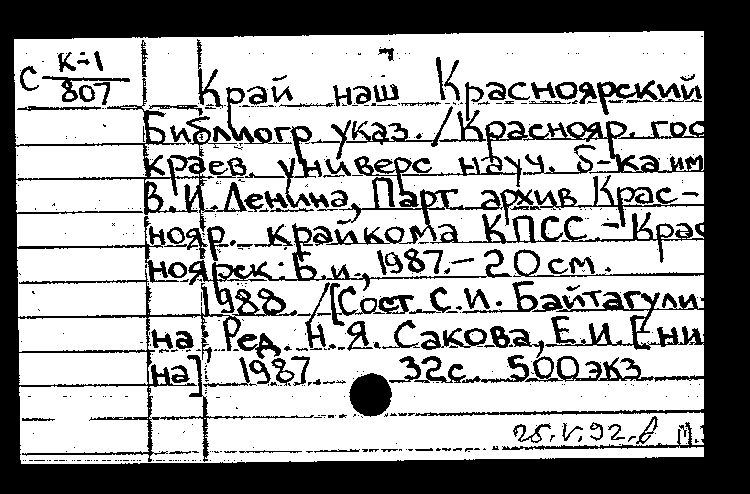 С К-1
807
Край наш Красноярский
Библиогр указ. / Краснояр. гос
краев. универс науч. б-ка им
В. И. Ленина, Парт. архив Крас-
нояр. крайкома КПСС. - Крас
ноярск: Б. и., 1987. - 20 см.
1988. / [Сост. С. И. Байтагули-
на; Ред. Н. Я. Сакова, Е. И. [ни
на] 1987. 32 с 500 экз
25.V.92.